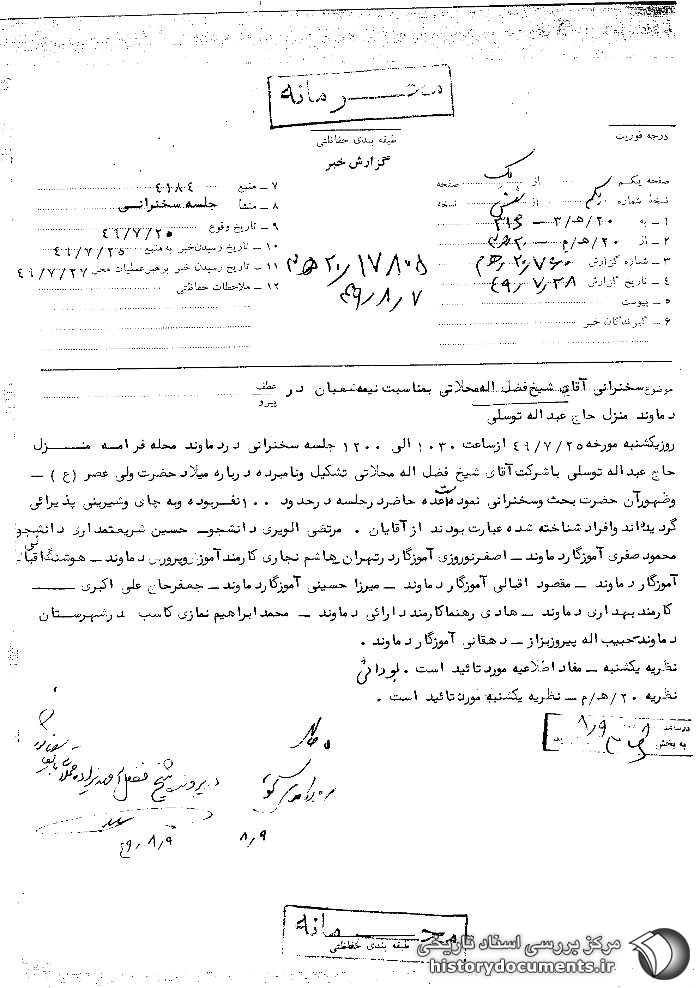 محرمانه
طبقه بندی حفاظتی
گزارش خبر
درجه فوریت
صفحه یکم از یک صفحه
نسخهٔ شماره یکم از شش نسخه
۱ ـ به ۲۰/هـ/۳ ـ ۳۱۶
۲ ـ از ۲۰/هـ/م ـ
۳ ـ شماره گزارش
۴ ـ تاریخ گزارش ۴۹/۷/۲۸
۵ ـ پیوست
۶ ـ گیرندگان خبر
۷ ـ منبع ۴۱۸۴
۸ ـ منشأ جلسه سخنرانی
۹ ـ تاریخ وقوع ۴۹/۷/۲۵
۱۰ ـ تاریخ رسیدن خبر به منبع ۴۹/۷/۲۵
۱۱ ـ تاریخ رسیدن خبر برهبر عملیات محل ۴۹/۷/۲۷
۱۲ ـ ملاحظات حفاظتی
۱۷۸۰۸/۲۰ هـ م
۴۹/۸/۷
موضوع سخنرانی آقای شیخ فضل اله محلاتی بمناسبت نیمه شعبان در
عطف
پیرو
دماوند منزل حاج عبد اله توسلی
روز یکشنبه مورخه ۴۹/۷/۲۵ از ساعت ۱۰۳۰ الی ۱۲۰۰ جلسه سخنرانی در دماوند محله فرامه منزل
حاج عبد اله توسلی با شرکت آقای شیخ فضل اله محلاتی تشکیل و نامبرده درباره میلاد حضرت ولی عصر (ع) ـ
و ظهور آن حضرت بحث و سخنرانی نموده است عده حاضر در جلسه در حدود ۱۰۰ نفر بوده و به چای و شیرینی پذیرائی
گردیده اند و افراد شناخته شده عبارت بودند از آقایان . مرتضی الویری دانشجو ـ حسین شریعتمداری دانشجو
محمود صفری آموزگار دماوند ـ اصغر نوروزی آموزگار در تهران هاشم نجاری کارمند آموزش و پرورش دماوند ـ هوشنگ اقبالی
آموزگار دماوند ـ مقصود اقبالی آموزگار دماوند ـ میرزا حسینی آموزگار دماوند ـ جعفر حاج علی اکبری ـ
کارمند بهداری دماوند ـ هادی رهنما کارمند دارائی دماوند ـ محمد ابراهیم نمازی کاسب در شهرستان
دماوند حبیب اله پیروز بزاز ـ دهقانی آموزگار دماوند .
نظریه یکشنبه ـ مفاد اطلاعیه مورد تائید است .
نظریه ۲۰/هـ/م ـ نظریه یکشنبه مورد تائید است .
در ساعت
به بخش
۸/۹
در پرونده شیخ فضل اله
۴۹/۸/۹
۸/۹
محرمانه
طبقه بندی حفاظتی
مرکز بررسی اسناد تاریخی
historydocuments.ir